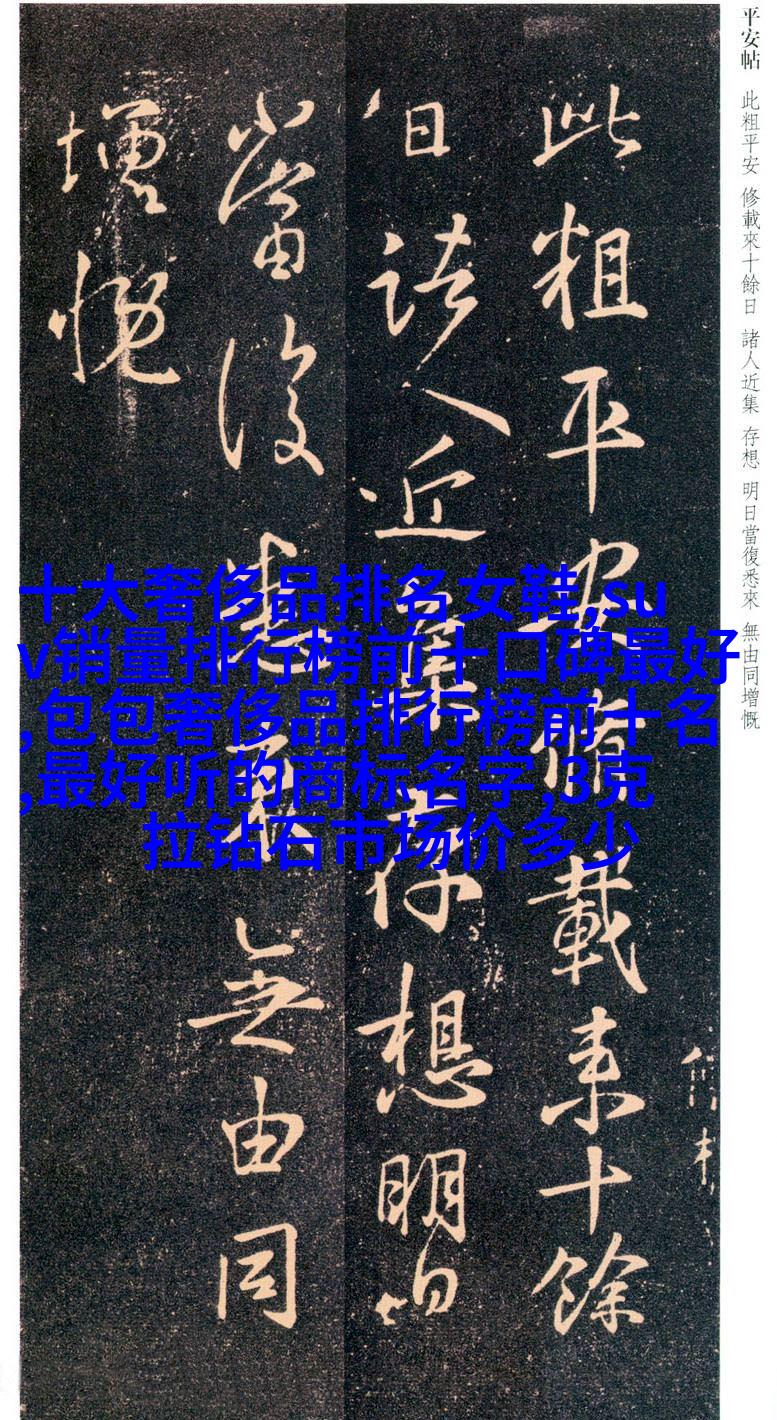 平安帖 此粗平安 修載來十餘日 諸人近集 存想 明日當復悉來 無由同增慨
此粗平安脩載来十餘
日諸人近集存想明日
當復悉来無由同
增慨
十大奢侈品排名女鞋,su
v销量排行榜前十口碑最好
,包包奢侈品排行榜前十名
,最好听的商标名字,3克
拉钻石市场价多少